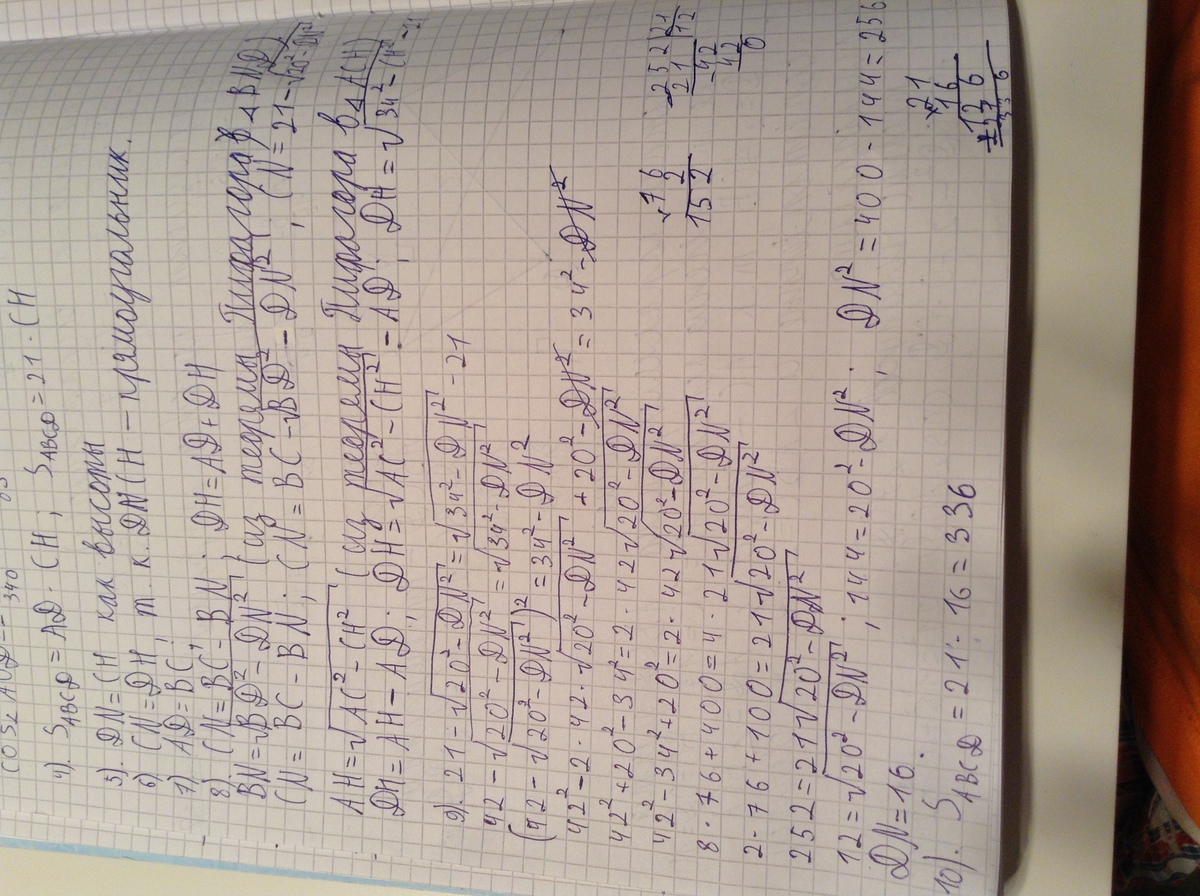 cos∠ACD = 340
4). S_ABCD = AD · CH ; S_ABCD = 21 · CH
5). DN = CH как высоты
6) CN = DH, т.к. DNCH – прямоугольник.
7) AD = BC;
8). CN = BC - BN; DH = AD + DH
BN = √(BD² - DN²) (из теоремы Пифагора в △BND)
CN = BC - BN; CN = BC - √(BD² - DN²); CN = 21 - √(20² - DN²)
AH = √(AC² - CH²) (из теоремы Пифагора в △ACH)
DH = AH - AD; DH = √(AC² - CH²) - AD; DH = √(34² - CH²) - 21
9). 21 - √(20² - DN²) = √(34² - DN²) - 21
42 - √(20² - DN²) = √(34² - DN²)
(42 - √(20² - DN²))² = 34² - DN²
42² - 2 · 42 · √(20² - DN²) + 20² - DN² = 34² - DN²
42² + 20² - 34² = 2 · 42√(20² - DN²)
42² - 34² + 20² = 2 · 42√(20² - DN²)
8 · 76 + 400 = 4 · 21√(20² - DN²)
2 · 76 + 100 = 21√(20² - DN²)
252 = 21√(20² - DN²)
12 = √(20² - DN²) ; 144 = 20² - DN²; DN² = 400 - 144 = 256
DN = 16
10). S_ABCD = 21 · 16 = 336
76
2
152
252 21
21 12
42
42
0
21
16
126